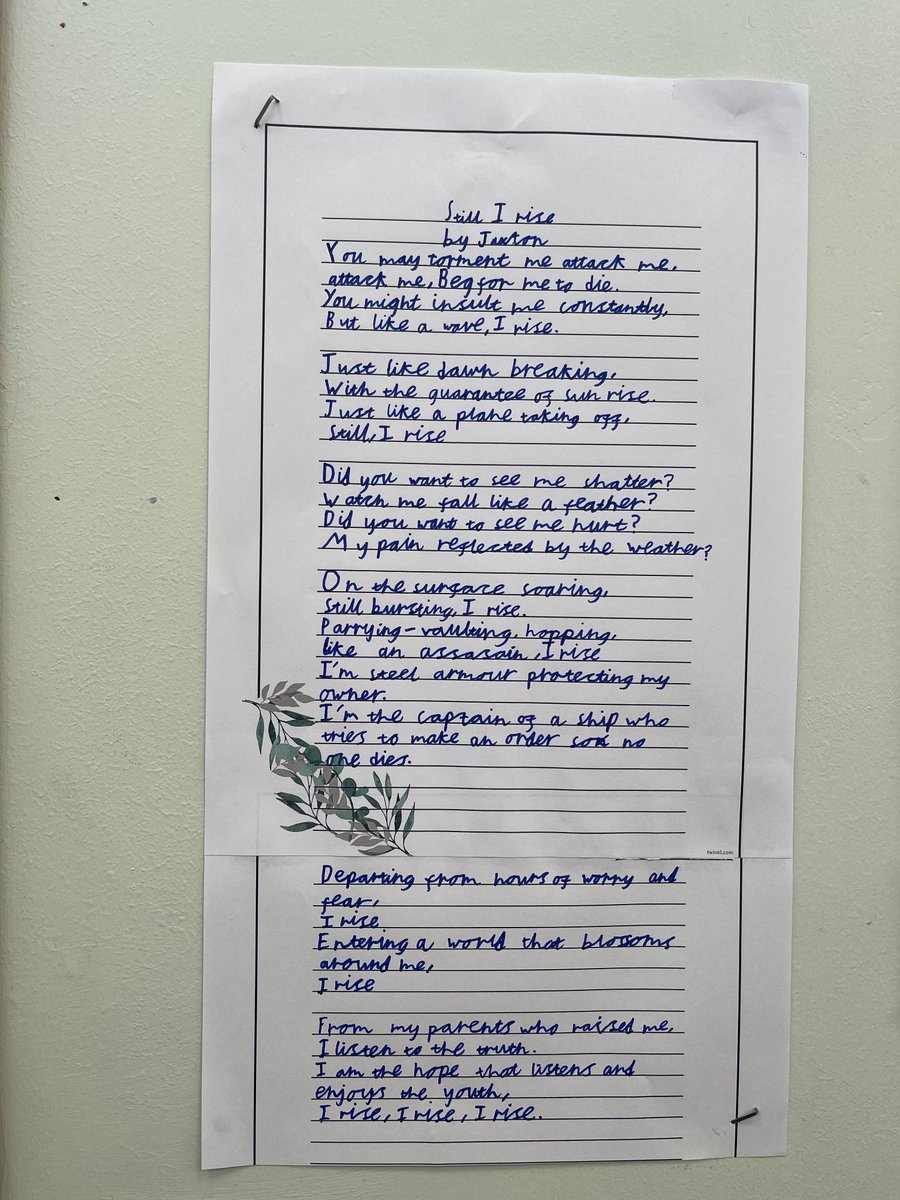 Still I rise
by Jaxton
You may torment me attack me,
attack me, Beg for me to die.
You might insult me constantly,
But like a wave, I rise.
Just like dawn breaking,
With the guarantee of sun rise.
Just like a plane taking off,
Still, I rise
Did you want to see me shatter?
Watch me fall like a feather?
Did you want to see me hurt?
My pain reflected by the weather?
On the surface soaring,
Still bursting, I rise.
Parrying-vaulting, hopping,
like an assasain, I rise
I'm steel armour protecting my
owner.
I'm the captain of a ship who
tries to make an order so no
one dies.
twinkl.com
Departing from hours of worry and
fear,
I rise
Entering a world that blossoms
around me,
I rise
From my parents who raised me,
I listen to the truth.
I am the hope that listens and
enjoys the youth,
I rise, I rise, I rise.